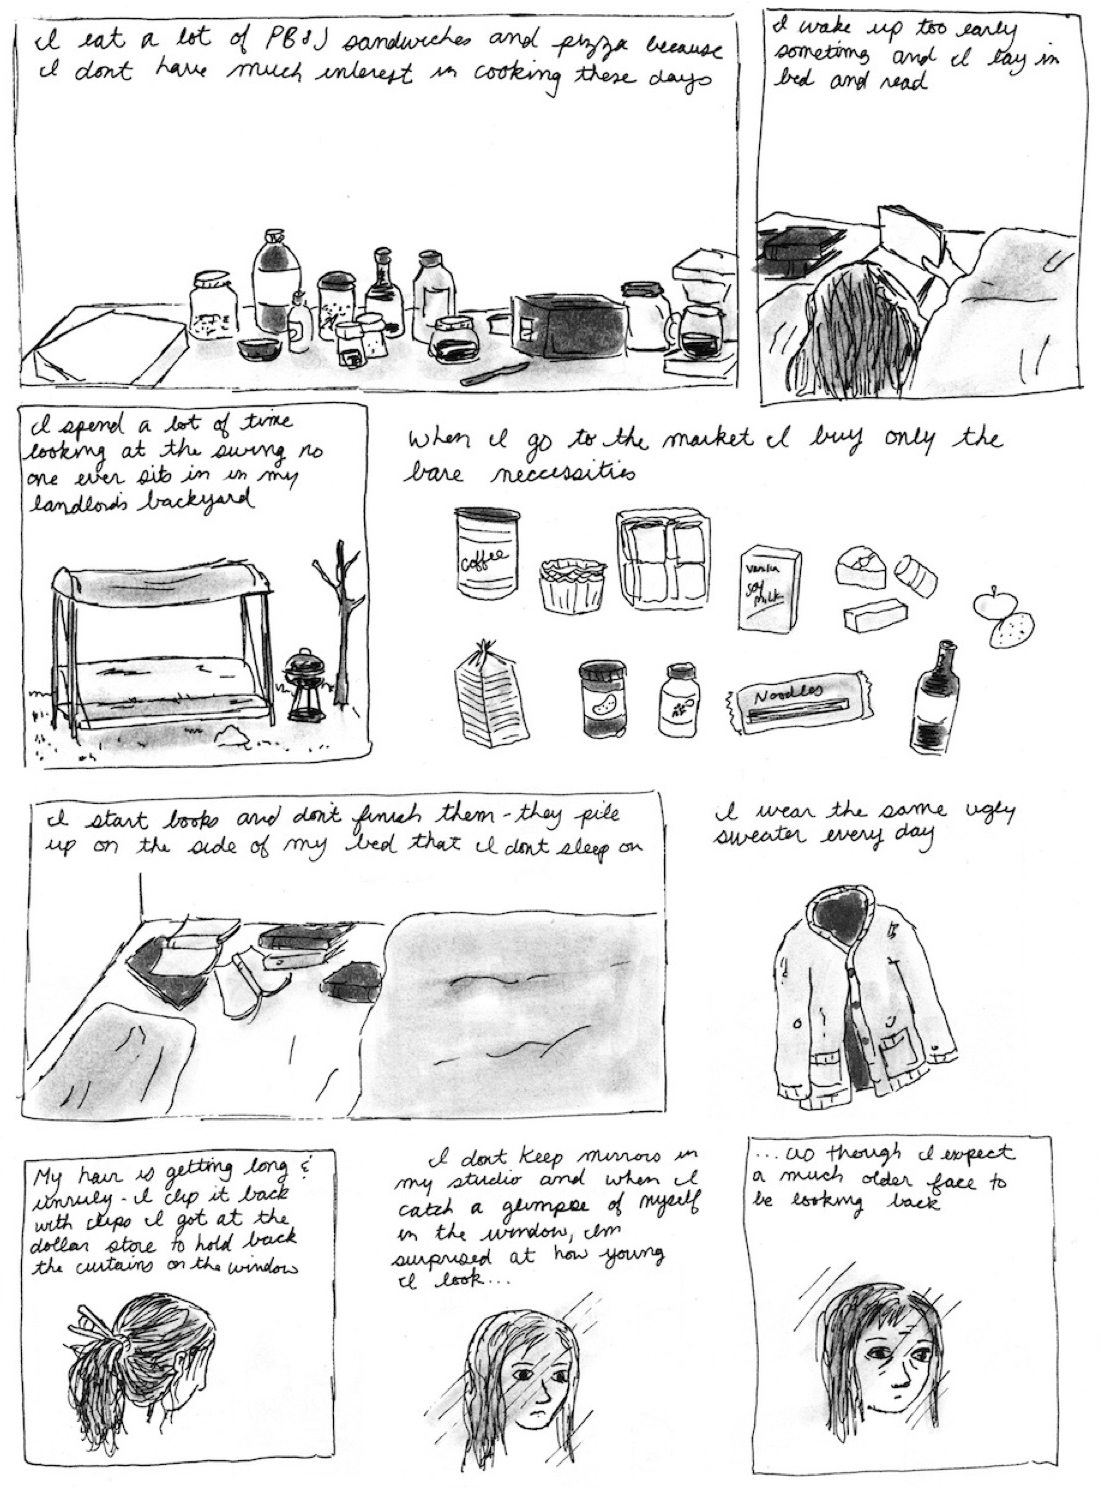 I eat a lot of PB&J sandwiches and pizza because
I dont have much interest in cooking these days
I wake up too early
sometimes and I lay in
bed and read
I spend a lot of time
looking at the swing no
one ever sits in in my
landlord's backyard
When I go to the market I buy only the
bare necessities
coffee
vanilla
soy
milk
Noodles
I start books and don't finish them - they pile
up on the side of my bed that I dont sleep on
I wear the same ugly
sweater every day
My hair is getting long &
unruly - I clip it back
with clips I got at the
dollar store to hold back
the curtains on the window
I dont keep mirrors in
my studio and when I
catch a glimpse of myself
in the window, I'm
surprised at how young
I look...
...as though I expect
a much older face to
be looking back